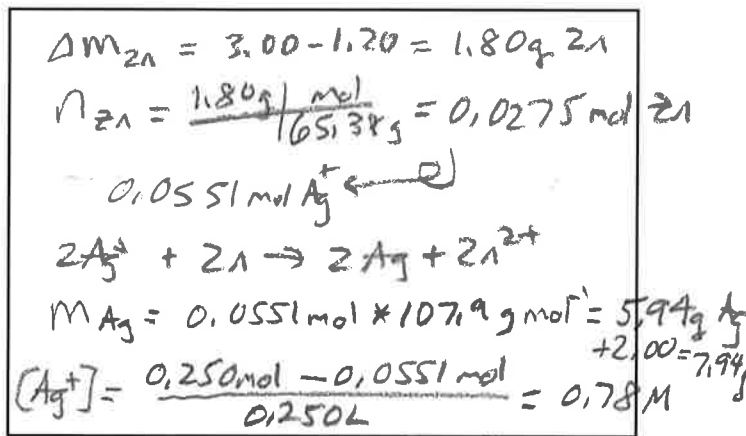 Δm Zn = 3.00 - 1.20 = 1.80g Zn
n Zn = 1.80g | mol / 65.38g = 0.0275 mol Zn
0.0551 mol Ag⁺ ←
2Ag⁺ + Zn → 2Ag + Zn²⁺
m Ag = 0.0551 mol * 107.9 g mol⁻¹ = 5.94g Ag
+2.00 = 7.94g
[Ag⁺] = 0.250mol - 0.0551 mol / 0.250L = 0.78 M